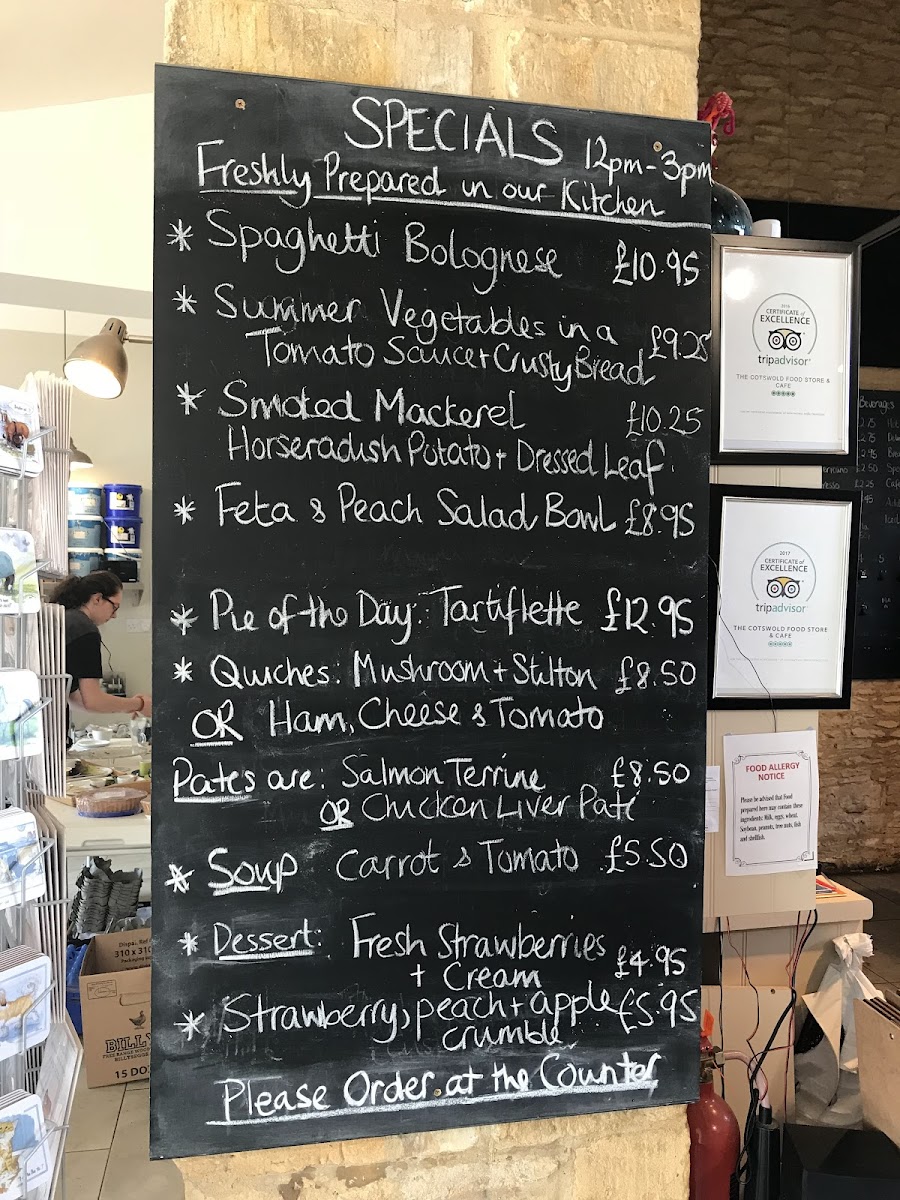 SPECIALS 12pm-3pm
Freshly Prepared in our Kitchen
* Spaghetti Bolognese £10.95
* Summer Vegetables in a £9.25
Tomato Sauce + Crusty Bread
* Smoked Mackerel £10.25
Horseradish Potato + Dressed Leaf.
* Feta & Peach Salad Bowl £8.95
* Pie of the Day: Tartiflette £12.95
* Quiches: Mushroom + Stilton £8.50
OR Ham, Cheese & Tomato
Pates are: Salmon Terrine £8.50
OR Chicken Liver Paté
* Soup Carrot & Tomato £5.50
* Dessert: Fresh Strawberries
+ Cream £4.95
* Strawberry, peach + apple £5.95
crumble
Please Order at the Counter
2016
CERTIFICATE of
EXCELLENCE
tripadvisor
THE COTSWOLD FOOD STORE &
CAFE
2017
CERTIFICATE of
EXCELLENCE
tripadvisor
THE COTSWOLD FOOD STORE
& CAFE
FOOD ALLERGY
NOTICE
Please be advised that Food
prepared here may contain these
ingredients: Milk, eggs, wheat,
Soybean, peanuts, tree nuts, fish
and shellfish.
Beverages
310 x 310
BILLY'S
15 DOZ